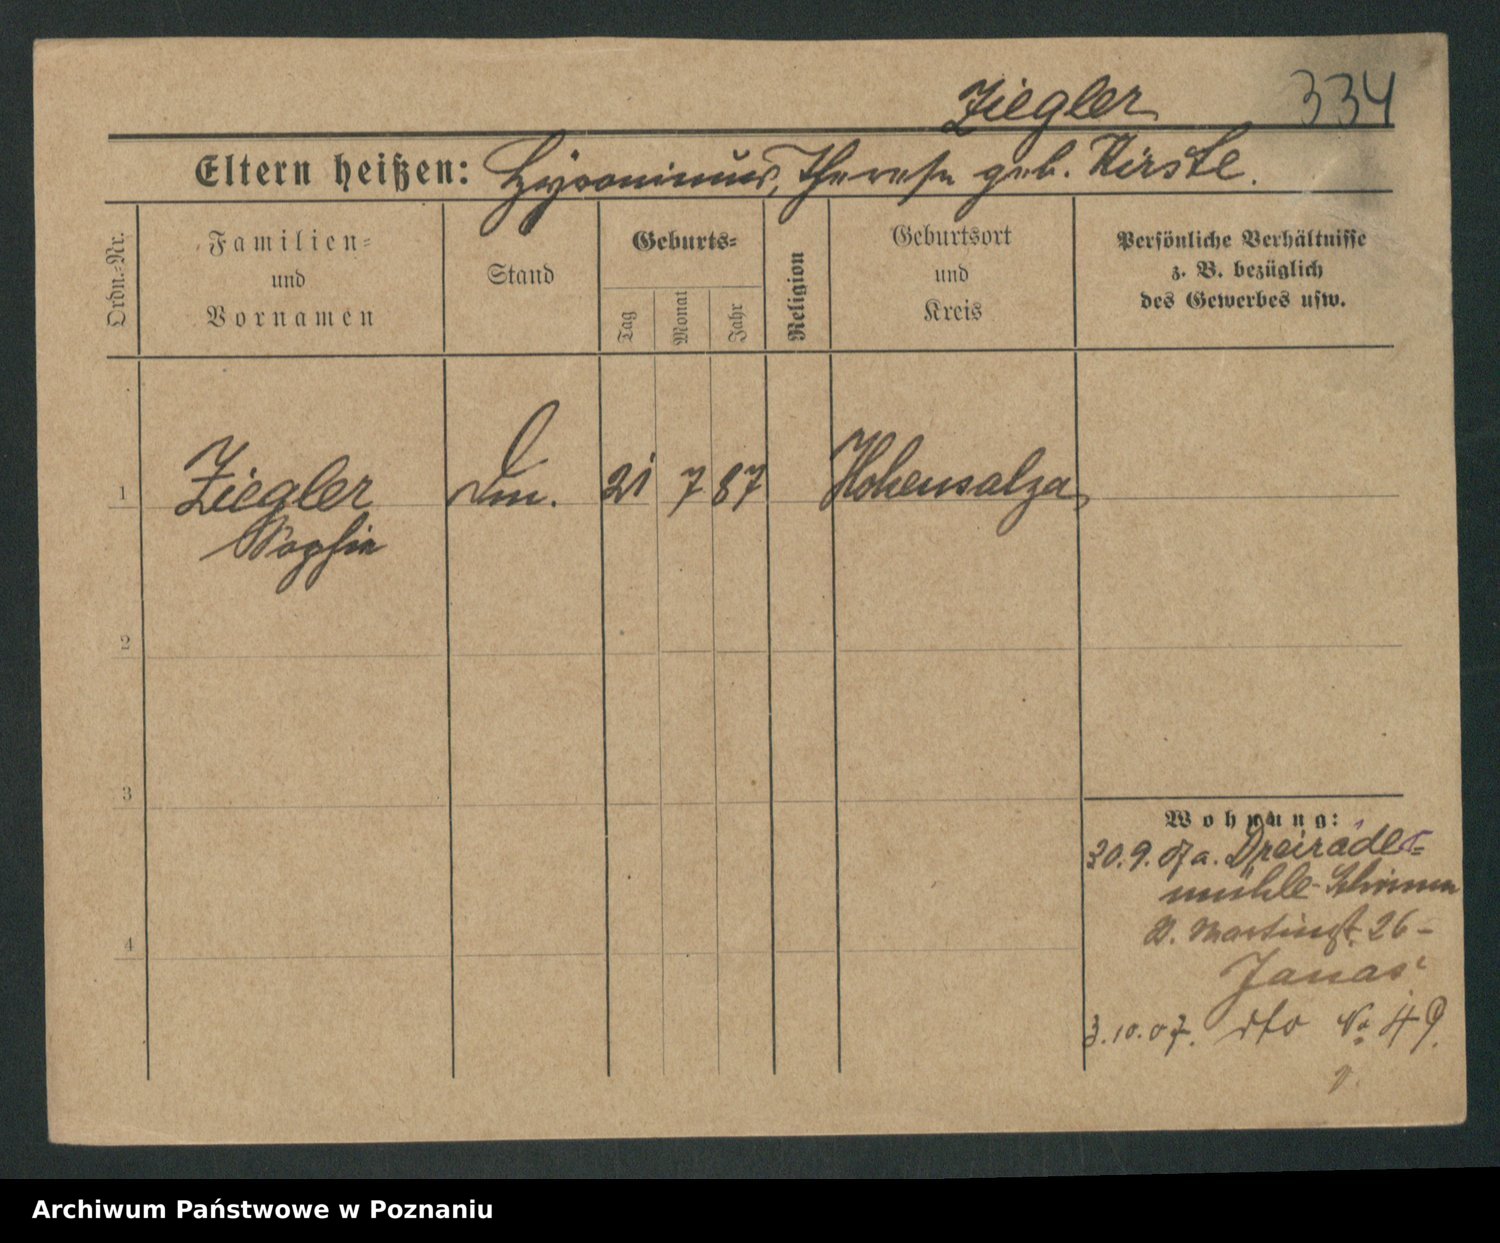 Ziegler 334
Eltern heißen: Hyronimus, Therese geb. Kirste.
Ordn.-Nr.
Familien-
und
Vornamen
Stand
Geburts-
Tag
Monat
Jahr
Religion
Geburtsort
und
Kreis
Persönliche Verhältnisse
z. B. bezüglich
des Gewerbes usw.
1 Ziegler Dm. 21 7 87 Hohensalza
Sophie
2
3
4
Wohnung:
30.9.07 a. Dreiräder-
mühle-
St. Martinst. 26-
Janas
3.10.07. dto No 49.
Archiwum Państwowe w Poznaniu